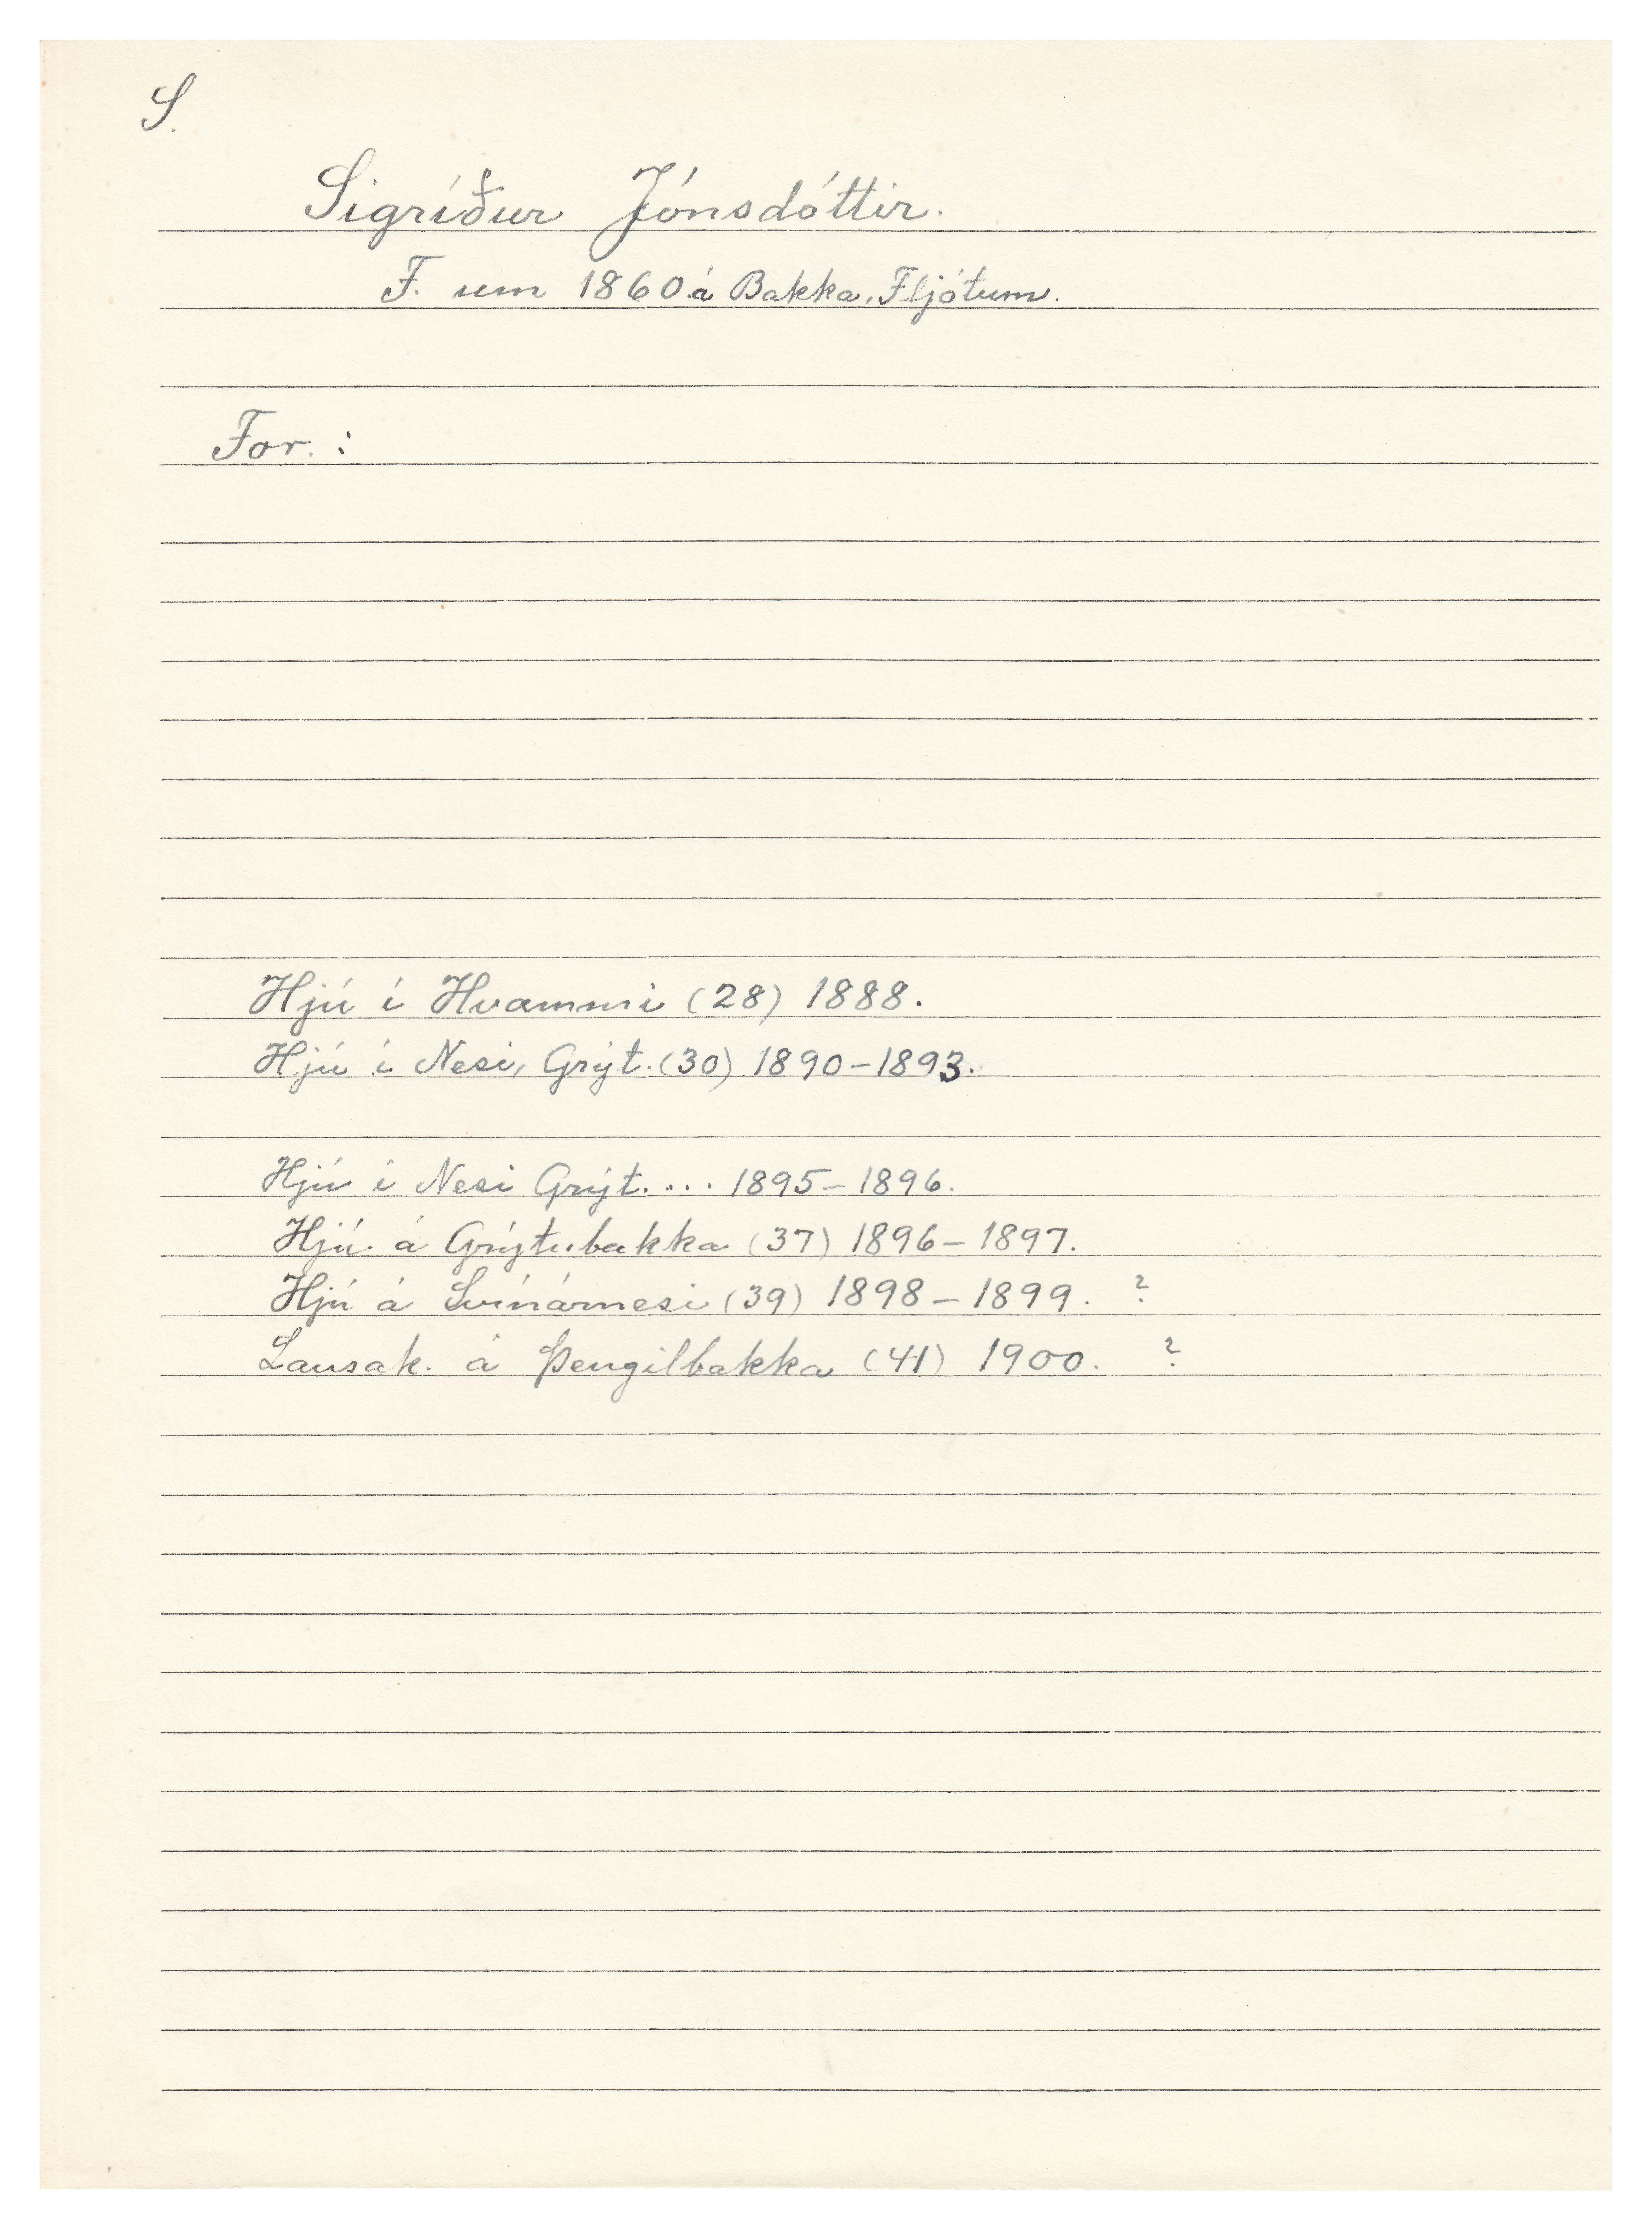 S.
Sigríður Jónsdóttir.
F. um 1860 á Bakka, Fljótum.
For. :
Hjú í Hvammi (28) 1888.
Hjú í Nesi, Grýt. (30) 1890-1893.
Hjú í Nesi Grýt. ... 1895-1896.
Hjú á Grýtubakka (37) 1896-1897.
Hjú á Svínárnesi (39) 1898-1899. ?
Lausak. á Þengilbakka (41) 1900. ?